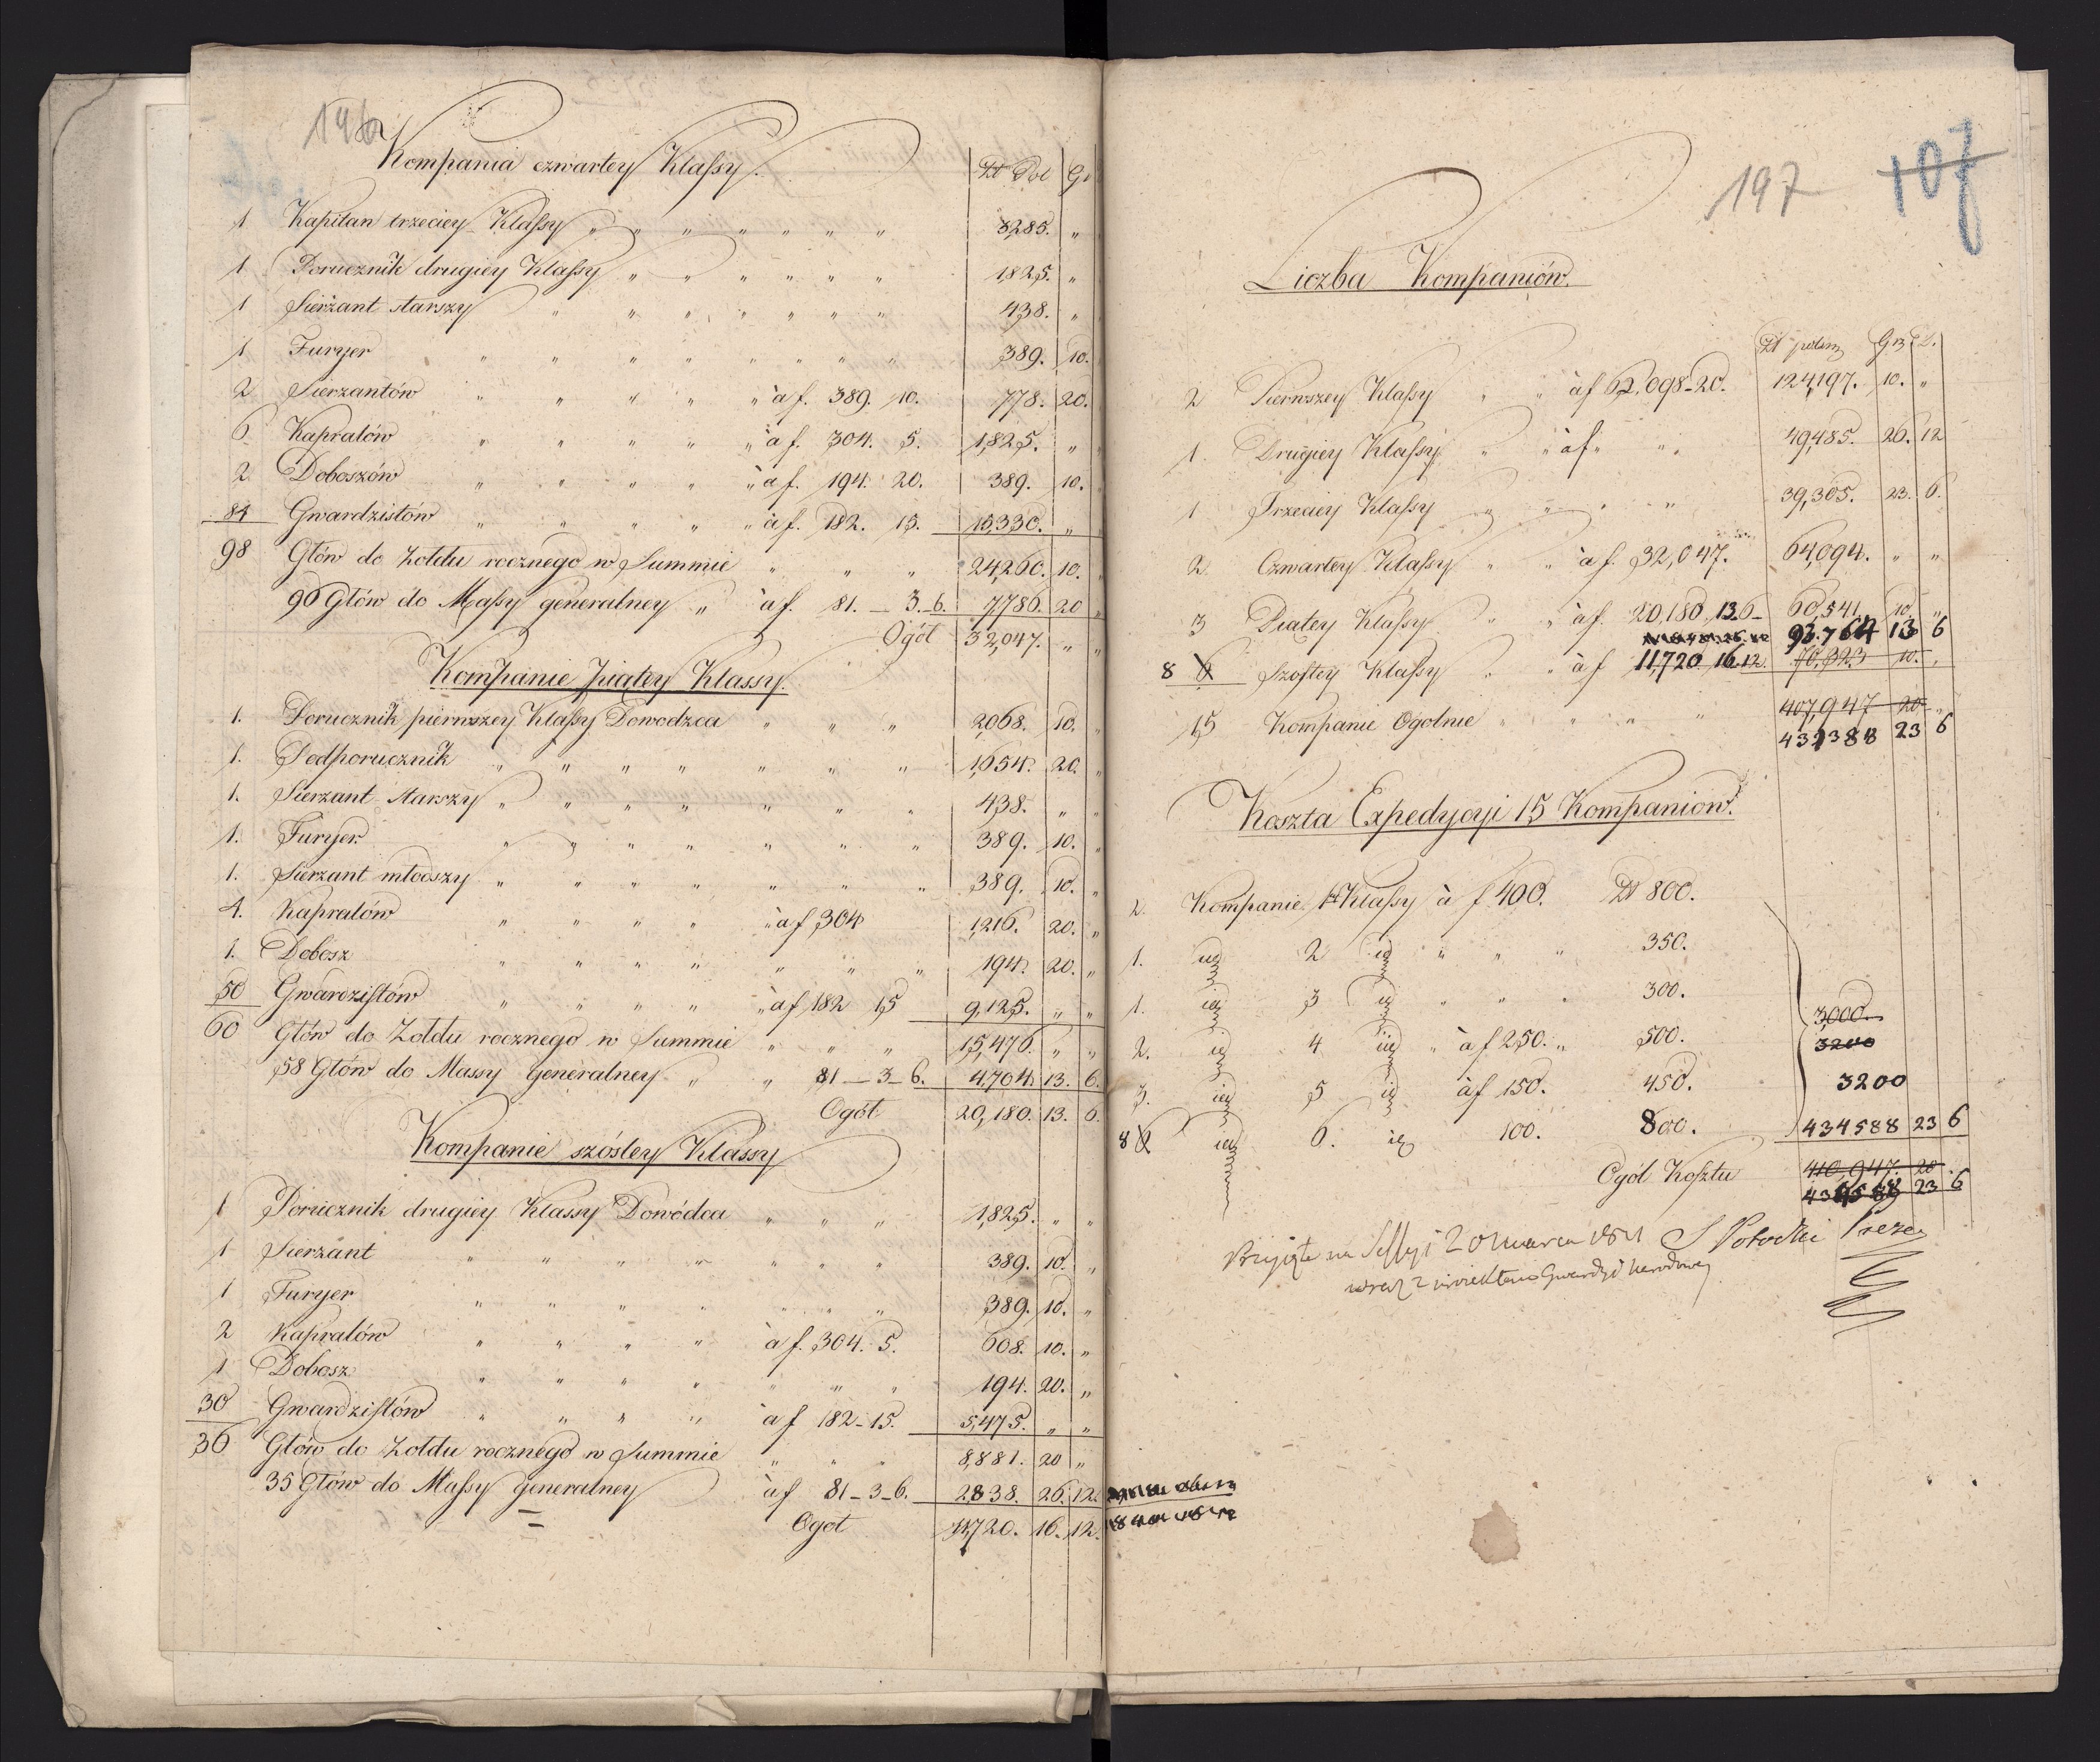 196
Kompania czwartey Klassy.
Zł Pol Gr
1 Kapitan trzeciey Klassy " " " " " " " 3,285. "
1 Porucznik drugiey Klassy " " " " " " 1,825. "
1 Sierżant starszy " " " " " " " 438. "
1 Furyer " " " " " " " " 389. 10.
2 Sierzantów " " " " " à f. 389. 10. 778. 20.
6 Kapralów " " " " " à f. 304. 5. 1,825. "
2 Doboszów " " " " " à f. 194. 20. 389. 10.
84 Gwardzistów " " " " " à f. 182. 15. 15,330. "
98 Głów do Żołdu rocznego w Summie " " " 24,260. 10.
96 Głów do Massy generalney " à f. 81. — 3. — 6. 7,786. 20 "
Ogół 32,047. " "
Kompanie piątey Klassy.
1. Porucznik pierwszey Klassy Dowodzca " " " 2,068. 10. "
1. Podporucznik " " " " " " " 1,654. 20. "
1. Sierzant starszy " " " " " " " 438. " "
1. Furyer. " " " " " " " 389. 10. "
1. Sierżant młodszy " " " " " " " 389. 10. "
4. Kapralów " " " " " à f 304 1,216. 20. "
1. Dobosz " " " " " " " 194. 20. "
50 Gwardzistów " " " " " à f 182 15 9,125. " "
60 Głów do Żołdu rocznego w Summie " " " 15,476. " "
58 Głów do Massy generalney " " 81 — 3 — 6. 4,704. 13. 6.
Ogół 20,180. 13. 6.
Kompanie szóstey Klassy
1 Porucznik drugiey Klassy Dowódca " " " 1,825. " "
1 Sierzant " " " " " " " 389. 10. "
1 Furyer " " " " " " " 389. 10. "
2 Kapralów " " " " à f. 304. 5. 608. 10. "
1 Dobosz " " " " " " " 194. 20. "
30 Gwardzistów " " " " à f 182 - 15. 5,475. " "
36 Głów do Żołdu rocznego w Summie " " " 8,881. 20 "
35 Głów do Massy generalney à f 81 - 3 - 6. 2,838. 26. 12.
Ogół 11,720. 16. 12.
197 107
Liczba Kompaniów.
Zł polsr Gr D.
2 Pierwszey Klassy " " à f 62,098 - 20. 124,197. 10. "
1. Drugiey Klassy " " à f " " 49,485. 26. 12
1 Trzeciey Klassy " " " " 39,305. 23. 6.
2. Czwartey Klassy " " à f. 32,047. 64,094. " "
3 Piatey Klassy " " à f. 20,180, 13. 6 - 60,541. 10. "
93.764 13 6
8 6 Szostey Klassy " " à f 11,720 16. 12. 70,323 10. "
15 Kompanie Ogolnie " " " " 407,947 20 "
431388 23 6
Koszta Expedycyi 15 Kompaniow.
2. Kompanie 1. Klassy à f 400. Zł 800.
1. 2 " " " 350.
1. 3 " " " 300.
3,000
2. 4 " à f 250. " 500.
3200
3. 5 à f 150. 450.
3200
8 6 6. 100. 800.
434588 23 6
Ogół Kosztu 410,947. 20
434588 23 6
Przyięte na Sessyi 20 marca S Potocki Prezes
wraz z Gwardyi Narodowey